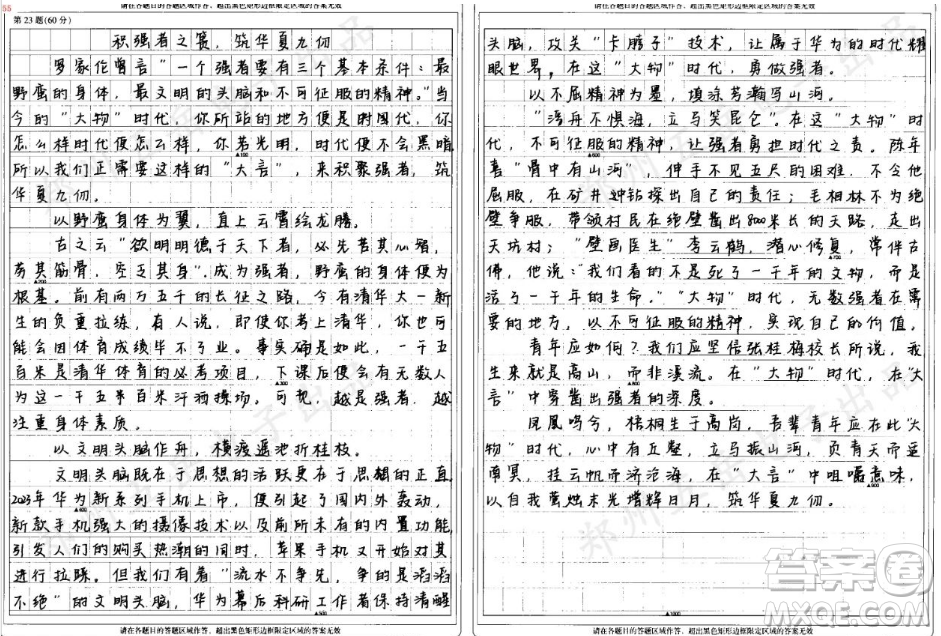 请在各题目的答题区域作答，超出黑色矩形边框限定区域的答案无效
55
第23题(60分)
积强者之赛，筑华夏九仞
罗家伦曾言"一个强者要有三个基本条件：最
野蛮的身体，最文明的头脑和不可征服的精神。"当
今的"大物"时代，你所站的地方便是时国代，你
怎么样时代便怎么样，你若光明，时代便不会黑暗
所以我们正需要这样的"大言"，来积聚强者，筑
华夏九仞。
以野蛮身体为翼，直上云霄绘龙腾。
古之云"欲明明德于天下者，必先苦其心智，
劳其筋骨，空乏其身"．成为强者，野蛮的身体便为
根基。前有两万五千的长征之路，今有清华大一新
生的负重拉练，有人说，即使你考上清华，你也可
能会因体育成绩毕不了业。事实确是如此，一千五
百米是清华体育的必考项目，下课后便会有无数人
为这一千五百米汗洒操场。可见，越是强者，越
注重身体素质。
以文明头脑作舟，横渡瑶池折桂枝。
文明头脑既在于思想的活跃更在于思想的正直
2023年华为新系列手机上市，便引起了国内外轰动，
新款手机强大的摄像技术以及前所未有的内置功能，
引发人们的购买热潮的同时，苹果手机又开始对其
进行拉踩。但我们有着"流水不争先，争的是滔滔
不绝"的文明头脑，华为幕后科研工作者保持清醒
请在各题目的答题区域作答，超出黑色矩形边框限定区域的答案无效
请在各题目的答题区域作答，超出黑色矩形边框限定区域的答案无效
头脑，攻关"卡脖子"技术，让属于华为的时代耀
眼世界，在这"大物"时代，勇做强者。
以不屈精神为墨，填涂苦瀚写山河。
"浮舟不惧海，立马笑昆仑"．在这"大物"时
代，不可征服的精神，让强者勇担时代之责。陈年
喜"骨中有山河"，伸手不见五尺的困难，不会他
屈服，在矿井钟钻探出自己的责任；毛相林不为绝
壁争服，带领村民在绝壁凿出8000米长的天路，走出
天坑村；"壁画医生"李云鹤，潜心修复，常伴古
佛，他说："我们看的不是死了一千年的文物，而是
活了一千年的生命。""大物"时代，无数强者在需
要的地方，以不可征服的精神，实现自己的价值。
青年应如何？我们应坚信张桂梅校长所说，我
生来就是高山，而非溪流。在"大物"时代，在"大
言"中穿凿出强者的深度。
凤凰鸣兮，梧桐生于高岗，吾辈青年应在此"大
物"时代，心中有丘壑，立马振山河，负青天而逼
南冥，挂云帆而济沧海，在"大言"中咀嚼意味，
以自我萤烛末光增辉日月，筑华夏九仞。
请在各题目的答题区域作答，超出黑色矩形边框限定区域的答案无效
答案圈
MXQE.COM